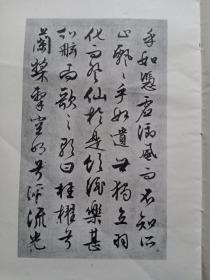 乎如憑虛御風而不知所
止飄飄乎如遺世獨立羽
化而登仙於是飲酒樂甚
扣舷而歌之歌曰桂櫂兮
蘭槳擊空明兮泝流光